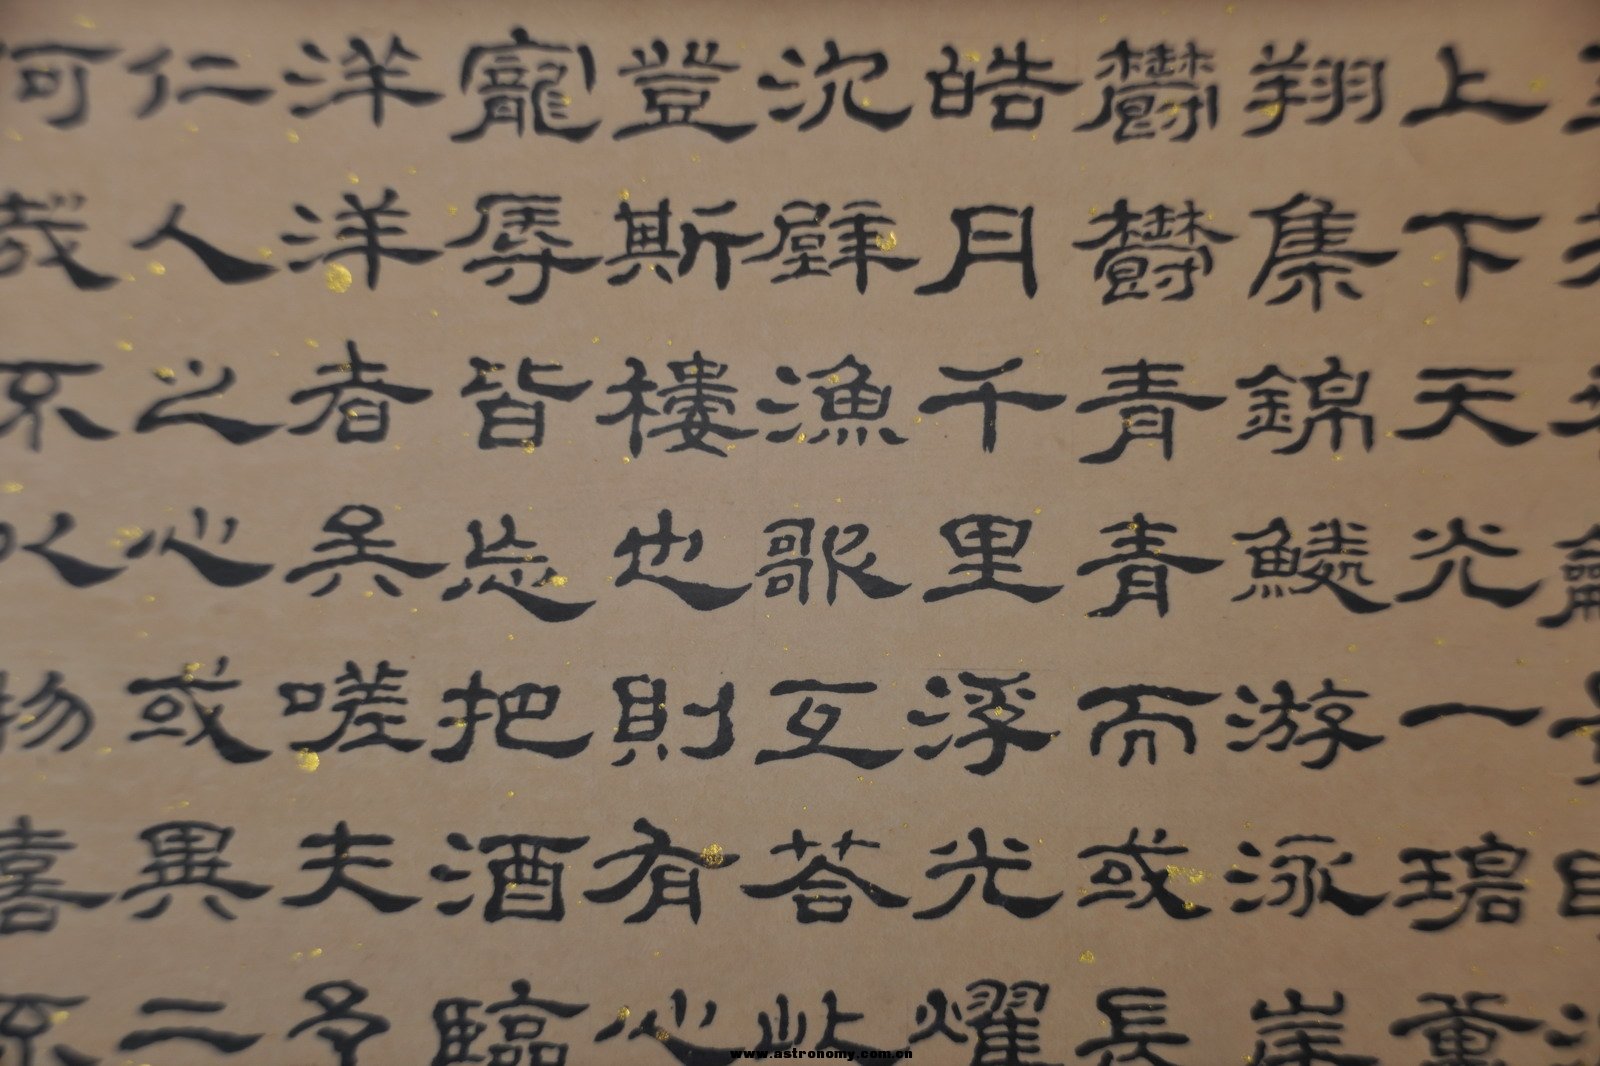 上下天光一碧萬
翔集錦鱗游泳岸
鬱鬱青青而或長
皓月千里浮光耀
沈璧漁歌互荅此
登斯樓也則有心
寵辱皆忘把酒臨
洋洋者矣嗟夫予
仁人之心或異二
何哉不以物喜不
www.astronomy.com.cn